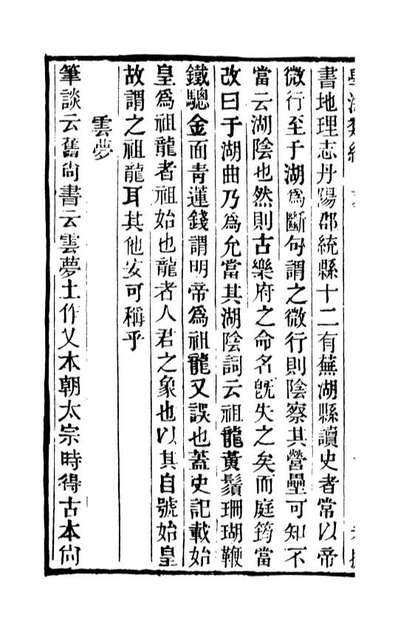 書地理志丹陽郡統縣十二有蕪湖縣讀史者當以帝
微行至于湖爲斷句謂之微行則陰察其營壘可知不
當云湖陰也然則古樂府之命名旣失之矣而庭筠當
改曰于湖曲乃爲允當其湖陰詞云祖龍黃鬚珊瑚鞭
鐵驄金面青蓮錢謂明帝爲祖龍又誤也蓋史記載始
皇爲祖龍者祖始也龍者人君之象也以其自號始皇
故謂之祖龍耳其他安可稱乎
雲夢
筆談云舊尚書云雲夢土作乂本朝太宗時得古本尚